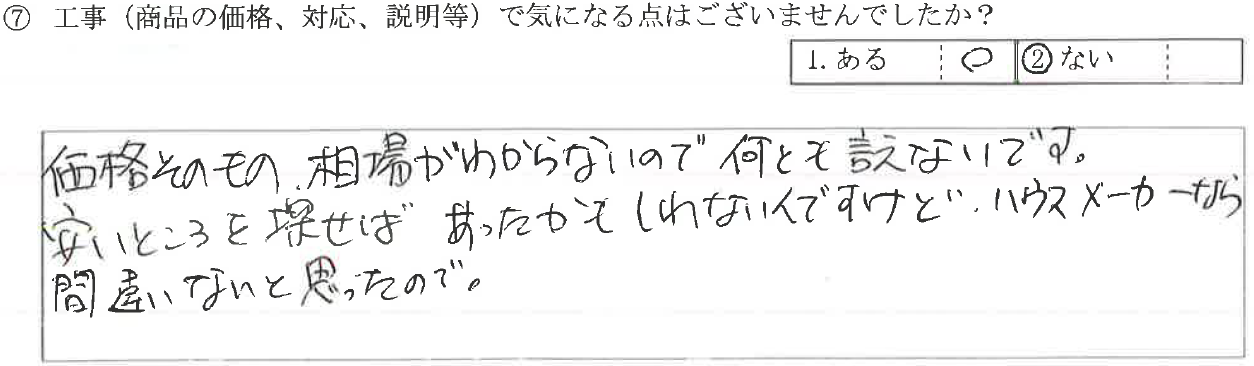 ⑦ 工事（商品の価格、対応、説明等）で気になる点はございませんでしたか？
1. ある ○ ②ない
価格そのもの、相場がわからないので何とも言えないです。
安いところを探せばあったかもしれないんですけど、ハウスメーカーなら
間違いないと思ったので。